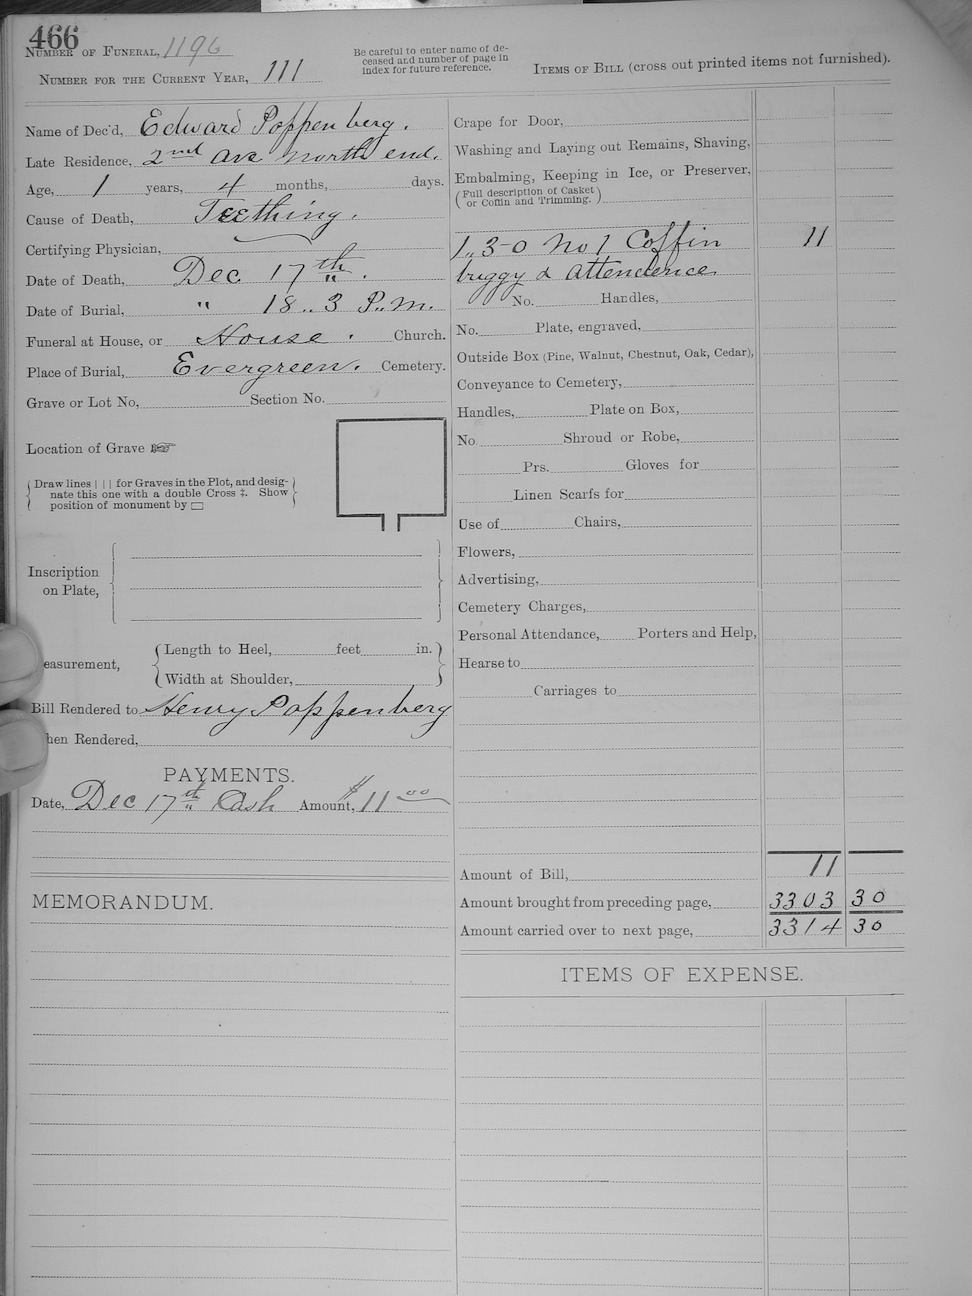 466
Number of Funeral, 1196
Number for the Current Year, 111
Be careful to enter name of de-
ceased and number of page in
index for future reference.
Items of Bill (cross out printed items not furnished).
Name of Dec'd, Edward Poppenberg.
Late Residence, 2nd Ave North end.
Age, 1 years, 4 months, days.
Cause of Death, Teething.
Certifying Physician,
Date of Death, Dec 17th.
Date of Burial, " 18.. 3 P.M.
Funeral at House, or House. Church.
Place of Burial, Evergreen. Cemetery.
Grave or Lot No, Section No.
Location of Grave ☞
Draw lines | | | for Graves in the Plot, and desig-
nate this one with a double Cross ‡. Show
position of monument by ▭
Inscription
on Plate,
easurement,
Length to Heel, feet in.
Width at Shoulder,
Bill Rendered to Henry Poppenberg
hen Rendered,
PAYMENTS.
Date, Dec 17th Cash Amount, $11 00
MEMORANDUM.
Crape for Door,
Washing and Laying out Remains, Shaving,
Embalming, Keeping in Ice, or Preserver,
(Full description of Casket
or Coffin and Trimming.)
1,, 3-0 No 1 Coffin 11
buggy & attendence
No. Handles,
No. Plate, engraved,
Outside Box (Pine, Walnut, Chestnut, Oak, Cedar),
Conveyance to Cemetery,
Handles, Plate on Box,
No. Shroud or Robe,
Prs. Gloves for
Linen Scarfs for
Use of Chairs,
Flowers,
Advertising,
Cemetery Charges,
Personal Attendance, Porters and Help,
Hearse to
Carriages to
Amount of Bill, 11
Amount brought from preceding page, 3303 30
Amount carried over to next page, 3314 30
ITEMS OF EXPENSE.